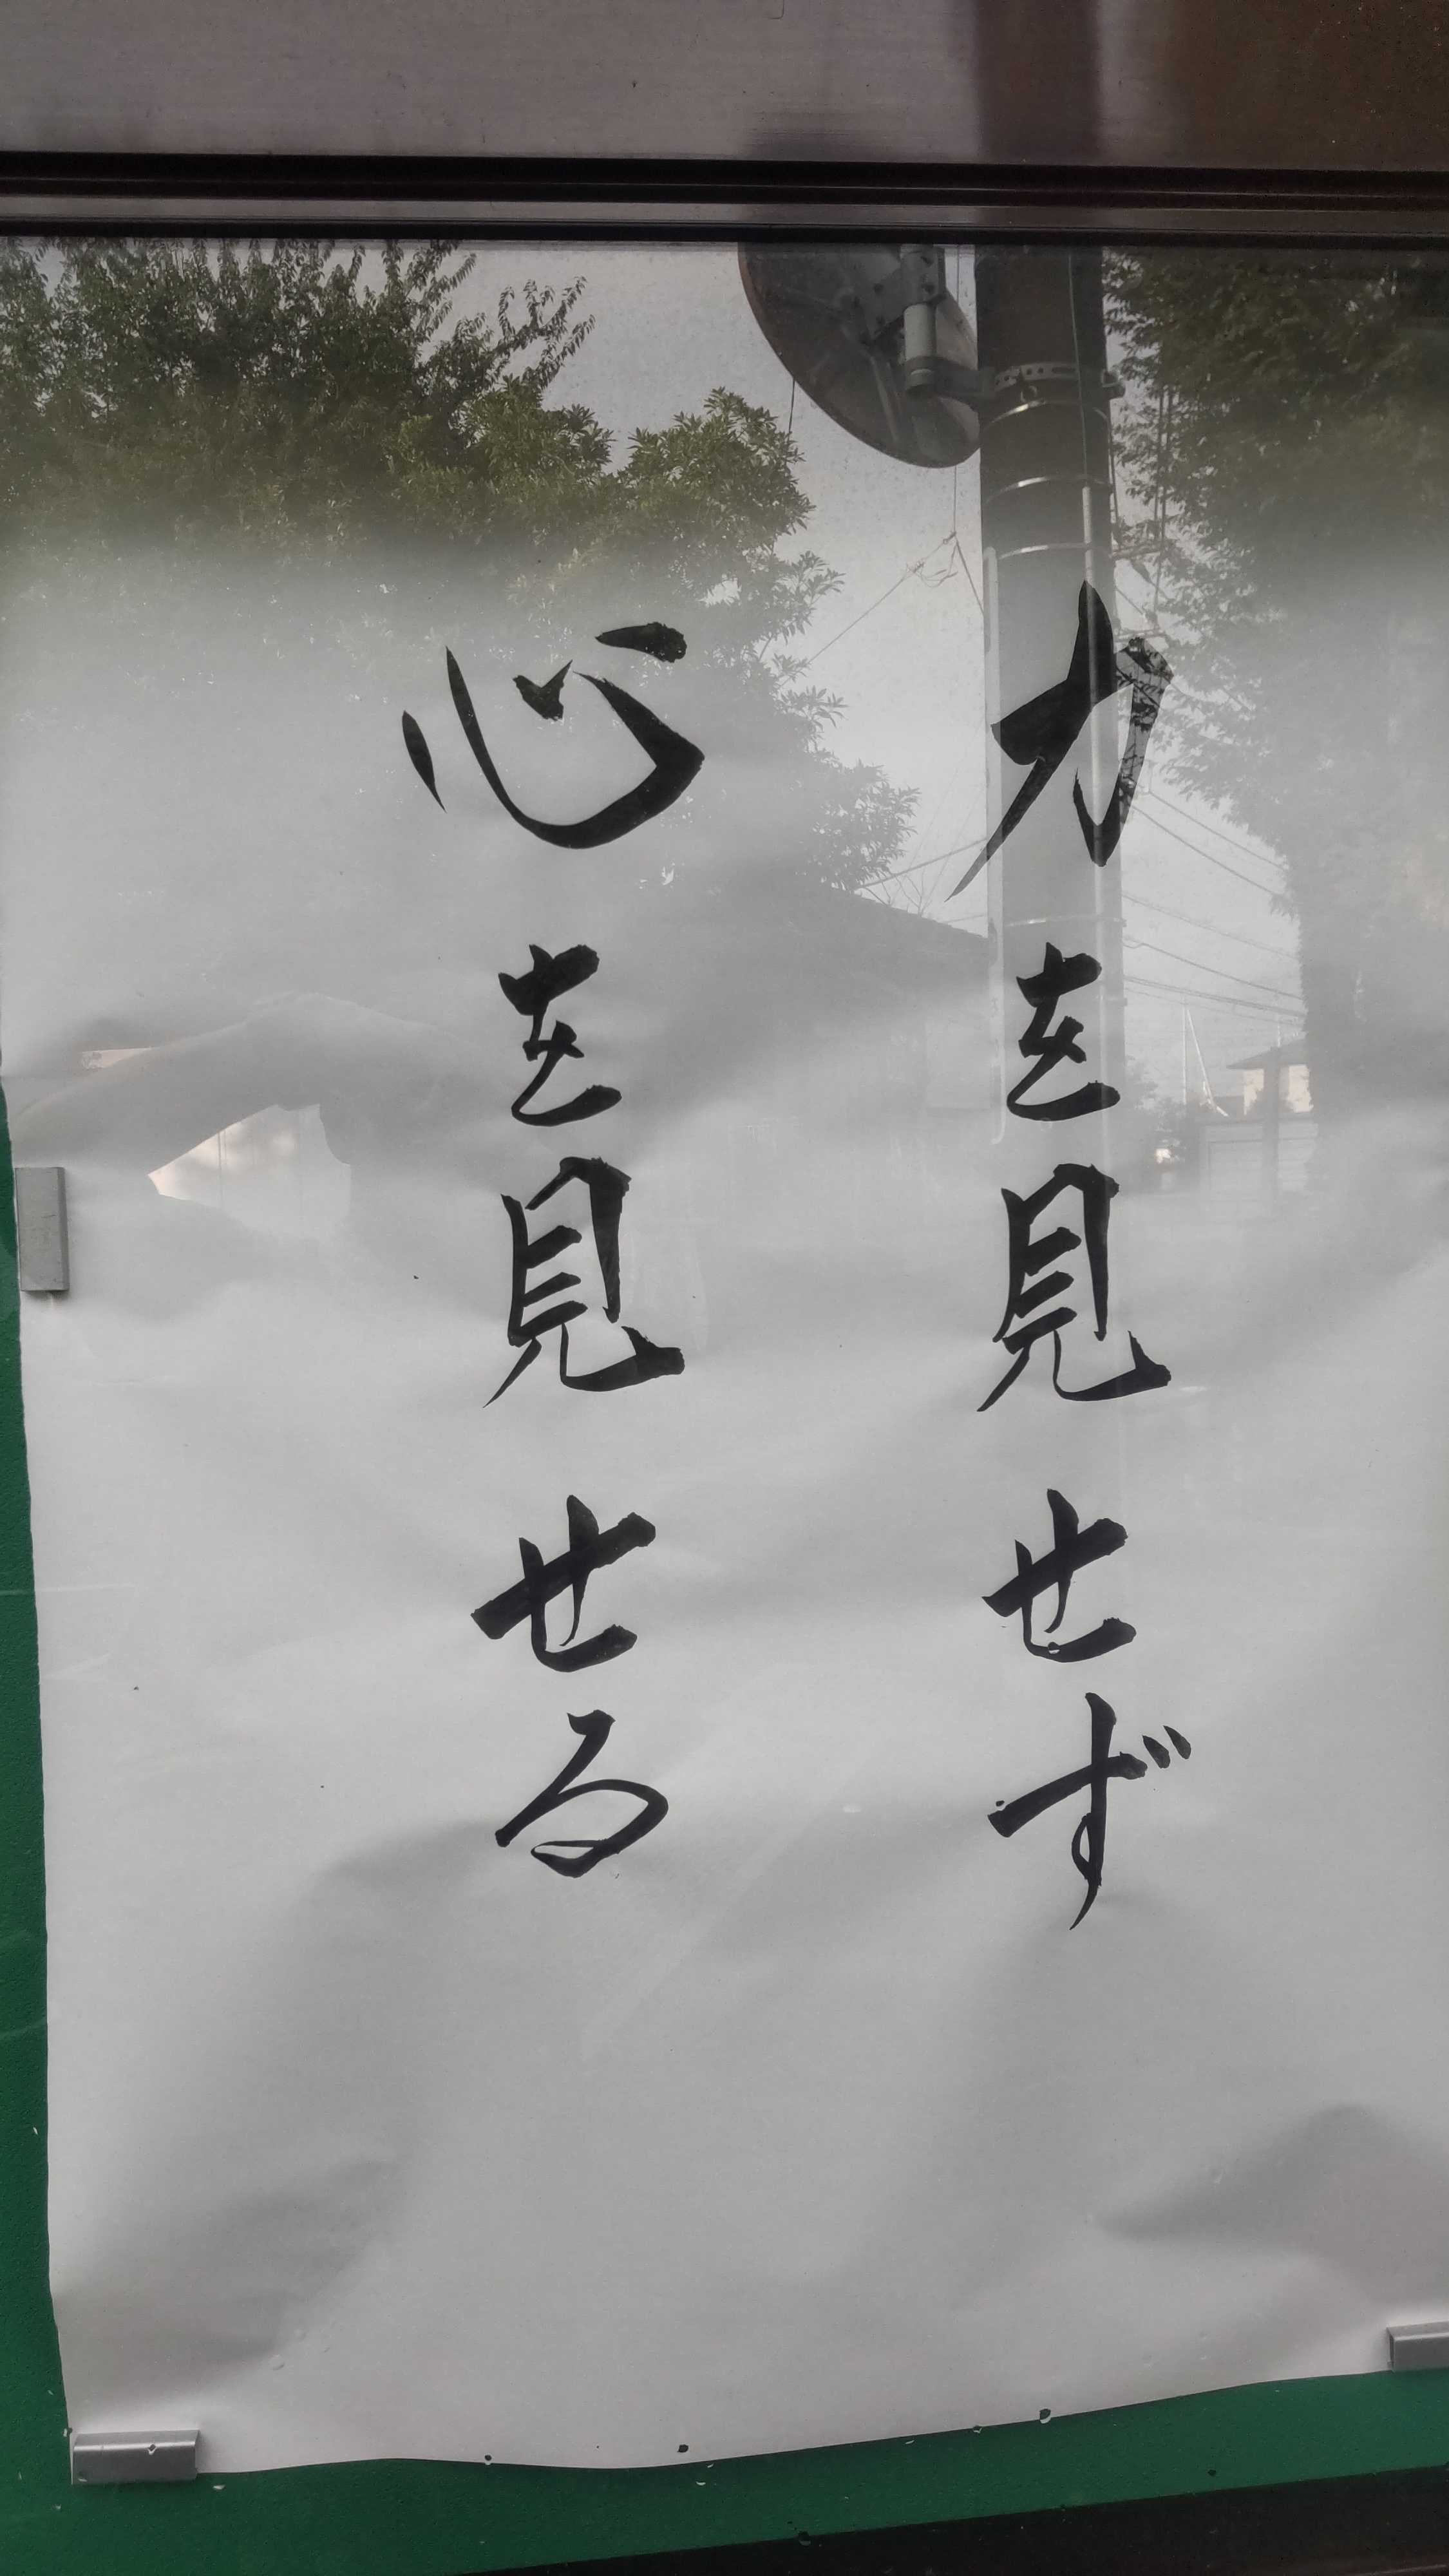 力を見せず
心を見せる